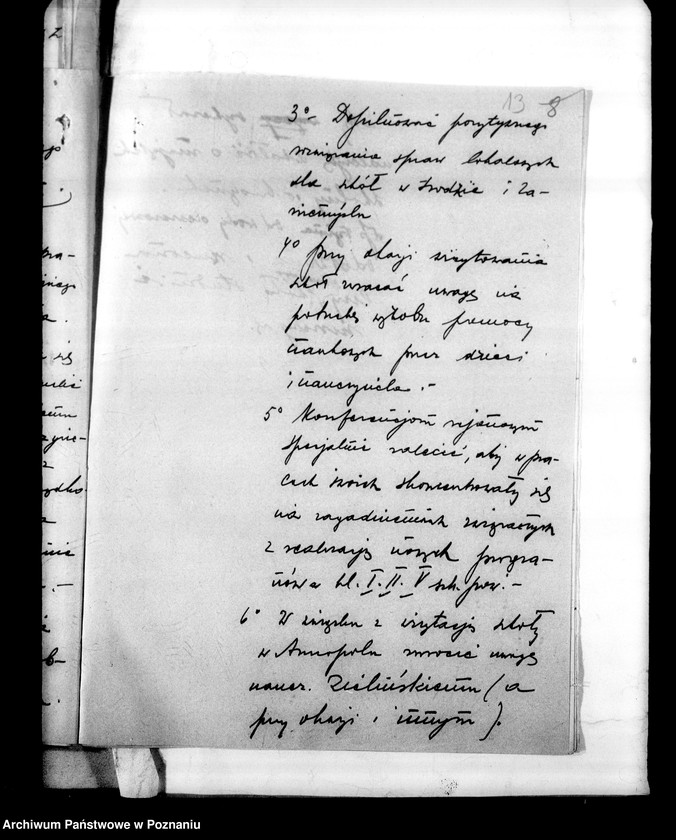 13 8
3º- Dopilnować pozytywnego
rozwiązania spraw lokalowych
dla szkół w Środzie i Za-
niemyślu
4º przy okazji wizytowania
szkół zwracać uwagę na
potrzebę wyrobu pomocy
naukowych przez dzieci
i nauczyciela.-
5º Konferencjom rejonowym
specjalnie zalecić, aby w pra-
cach swoich skoncentrowały się
na zagadnieniach związanych
z realizacją nowych progra-
mów w kl. I. II. V szk. pow.-
6º W związku z wizytacją szkoły
w Annopolu zwrócić uwagę
naucz. Zielińskiemu (a
przy okazji i innym).
Archiwum Państwowe w Poznaniu